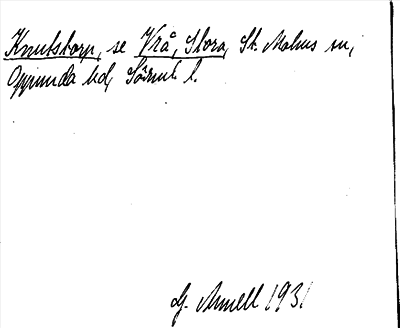 Knutstorp, se Vrå, Stora, St. Malms sn,
Oppunda hd, Södml. l.
G. Arnell 1931